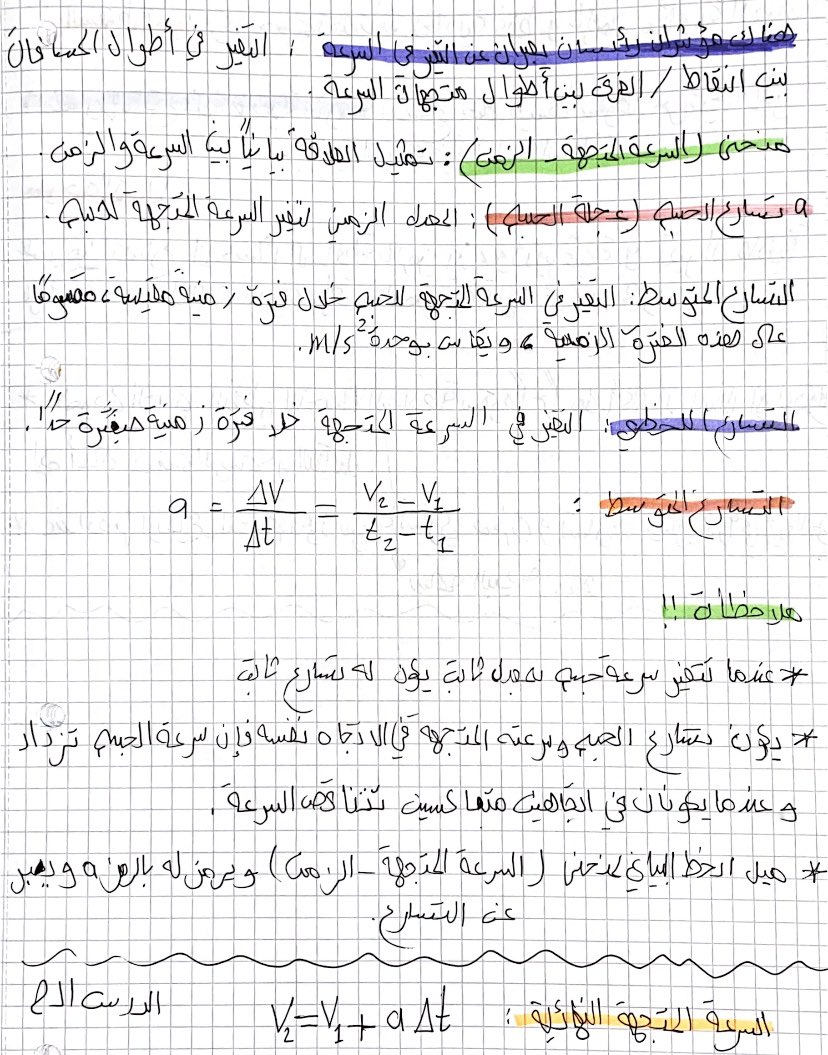 هناك مؤشران رئيسان يعبران عن التغير في السرعة : التغير في أطوال المسافات
بين النقاط / الفرق بين أطوال متجهات السرعة .
منحنى (السرعة المتجهة - الزمن) : تمثيل العلاقة بيانياً بين السرعة والزمن .
a تسارع الجسم (عجلة الجسم) : المعدل الزمني لتغير السرعة المتجهة للجسم .
التسارع المتوسط : التغير في السرعة المتجهة للجسم خلال فترة زمنية مقيسة ، مقسومًا
على هذه الفترة الزمنية ، ويقاس بوحدة m/s² .
التسارع اللحظي : التغير في السرعة المتجهة خلا فترة زمنية صغيرة جدًا .
التسارع المتوسط : a = ΔV/Δt = V₂ - V₁ / t₂ - t₁
ملاحظات !!
* عندما تتغير سرعة جسم بمعدل ثابت يكون له تسارع ثابت
* يكون تسارع الجسم وسرعته المتجهة في الاتجاه نفسه فإن سرعة الجسم تزداد
وعندما يكونان في اتجاهين متعاكسين تتناقص السرعة .
* ميل الخط البياني لمنحنى (السرعة المتجهة - الزمن) ويرمز له بالرمز a ويعبر
عن التسارع .
السرعة المتجهة النهائية : V₂ = V₁ + a Δt